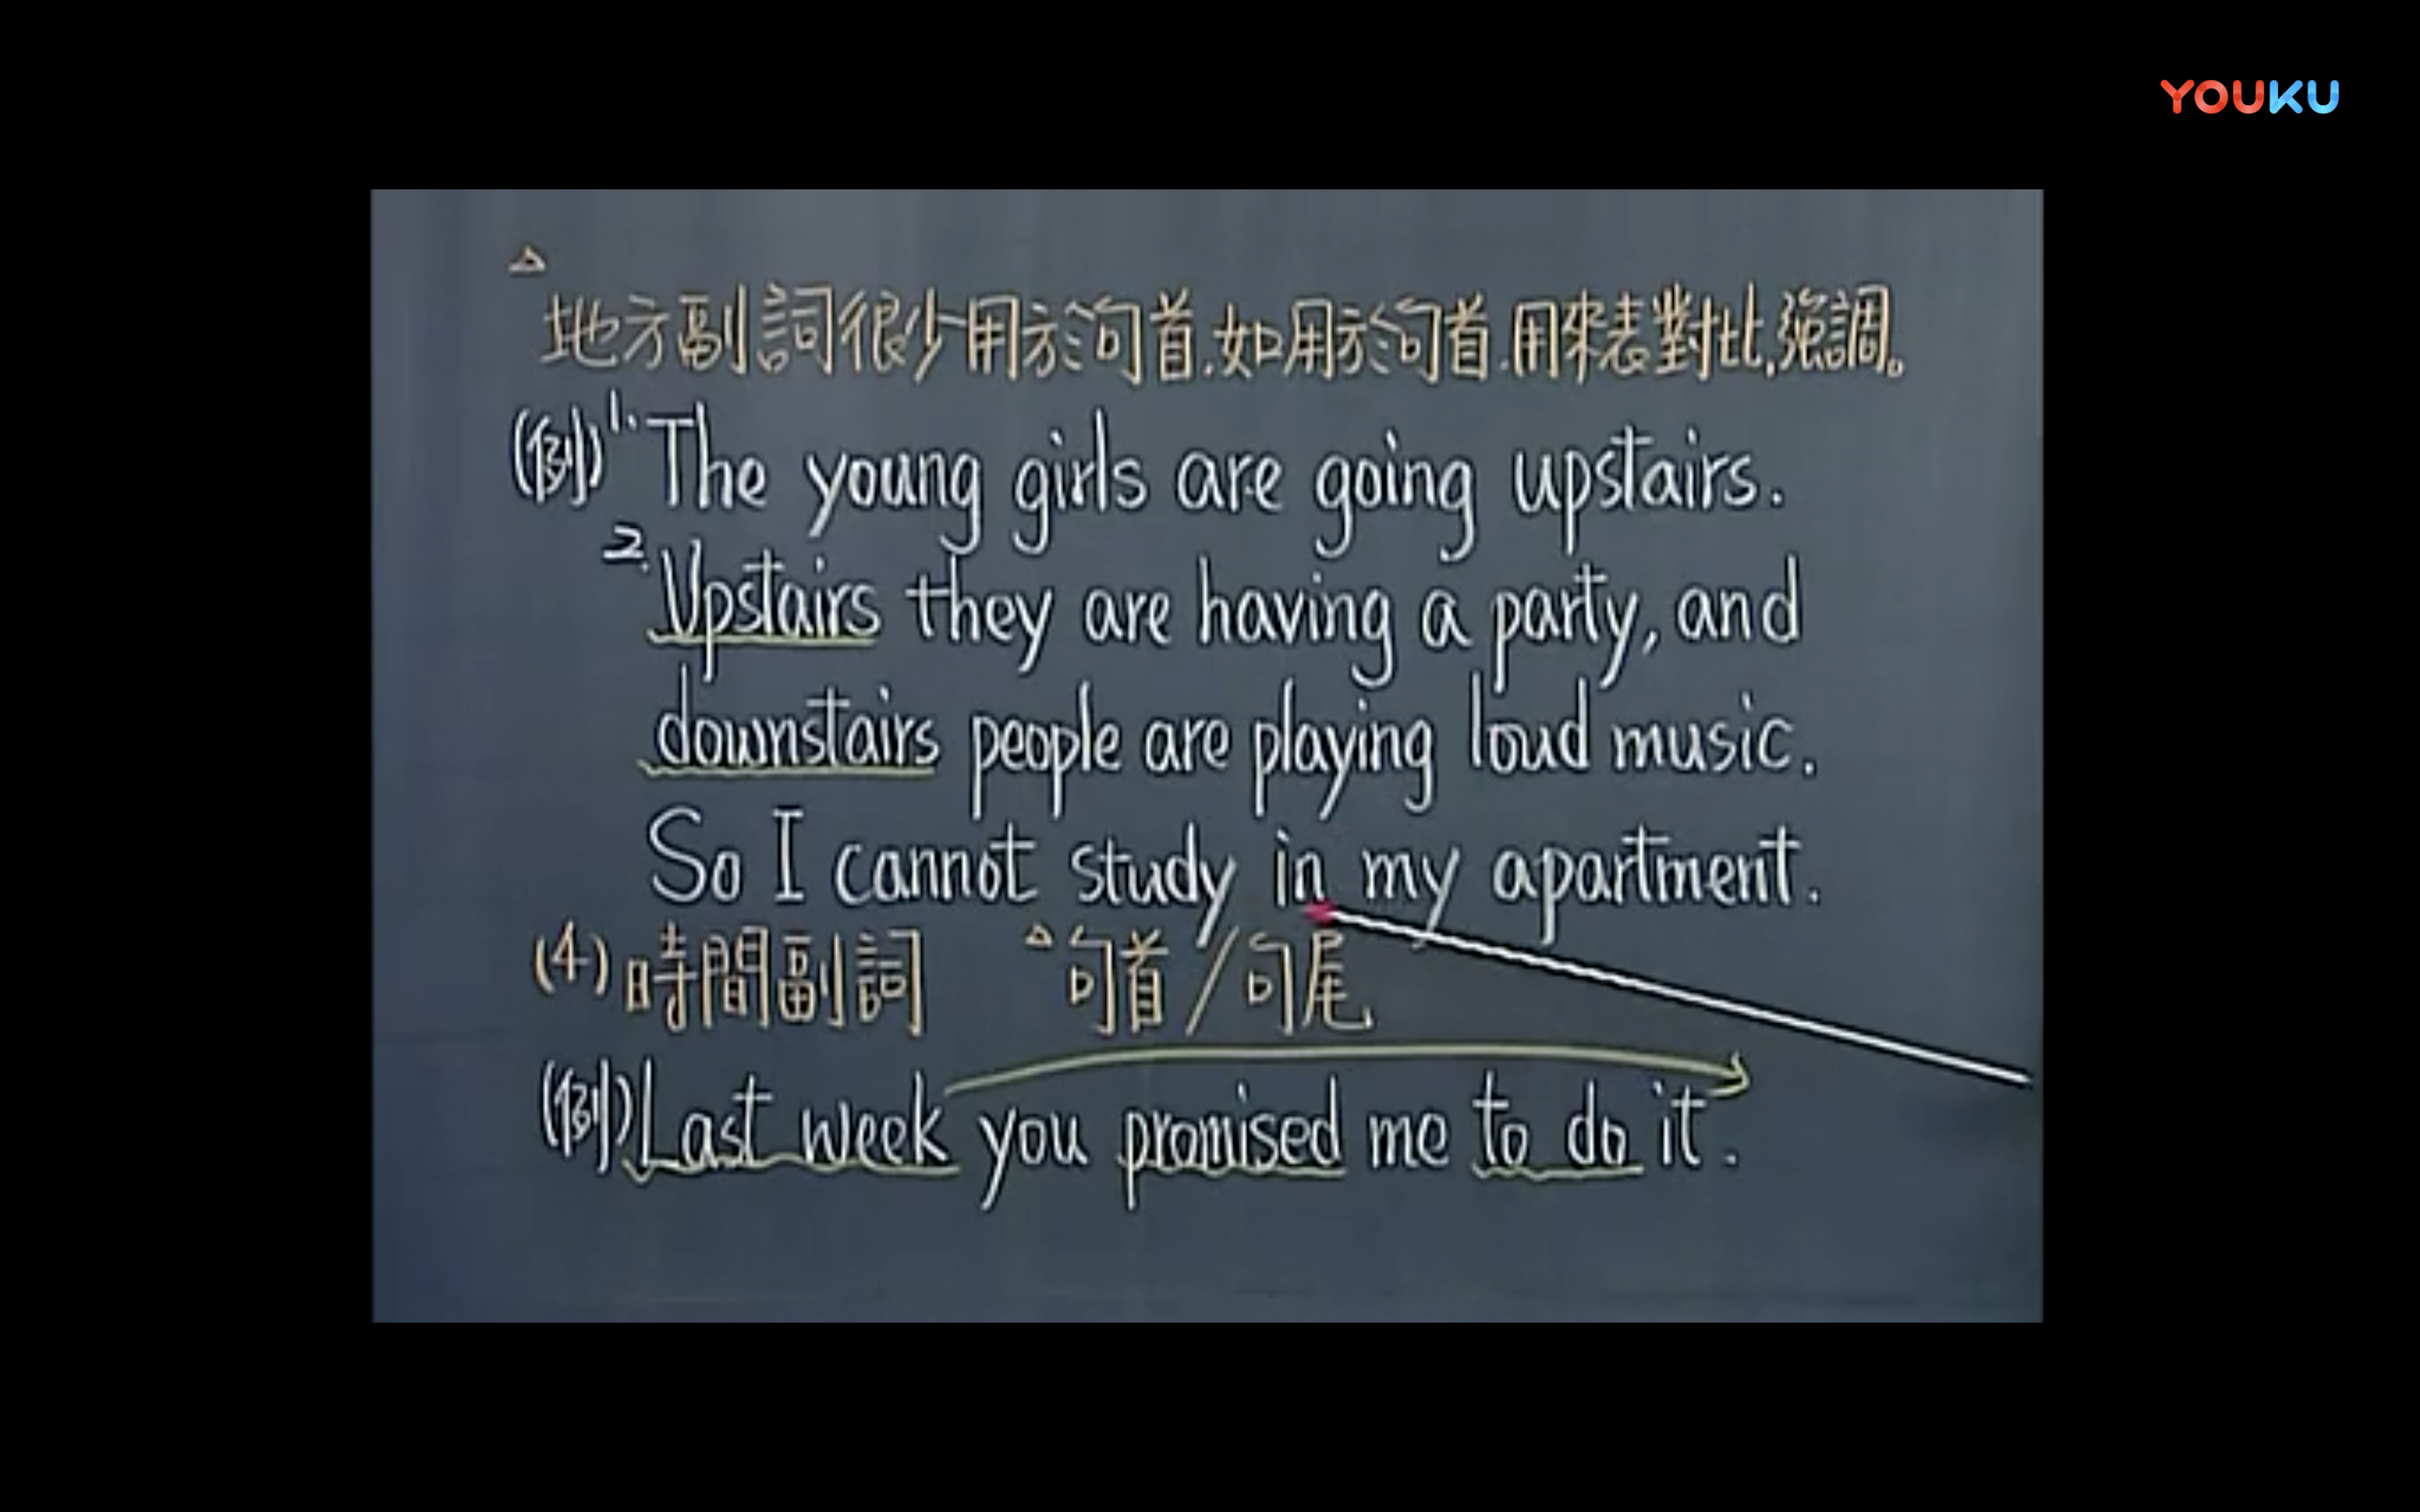 YOUKU
△
地方副詞很少用於句首.如用於句首.用來表對比,強調。
(例)1. The young girls are going upstairs.
2. Upstairs they are having a party, and
downstairs people are playing loud music.
So I cannot study in my apartment.
(4)時間副詞 △句首/句尾
(例)Last week you promised me to do it.